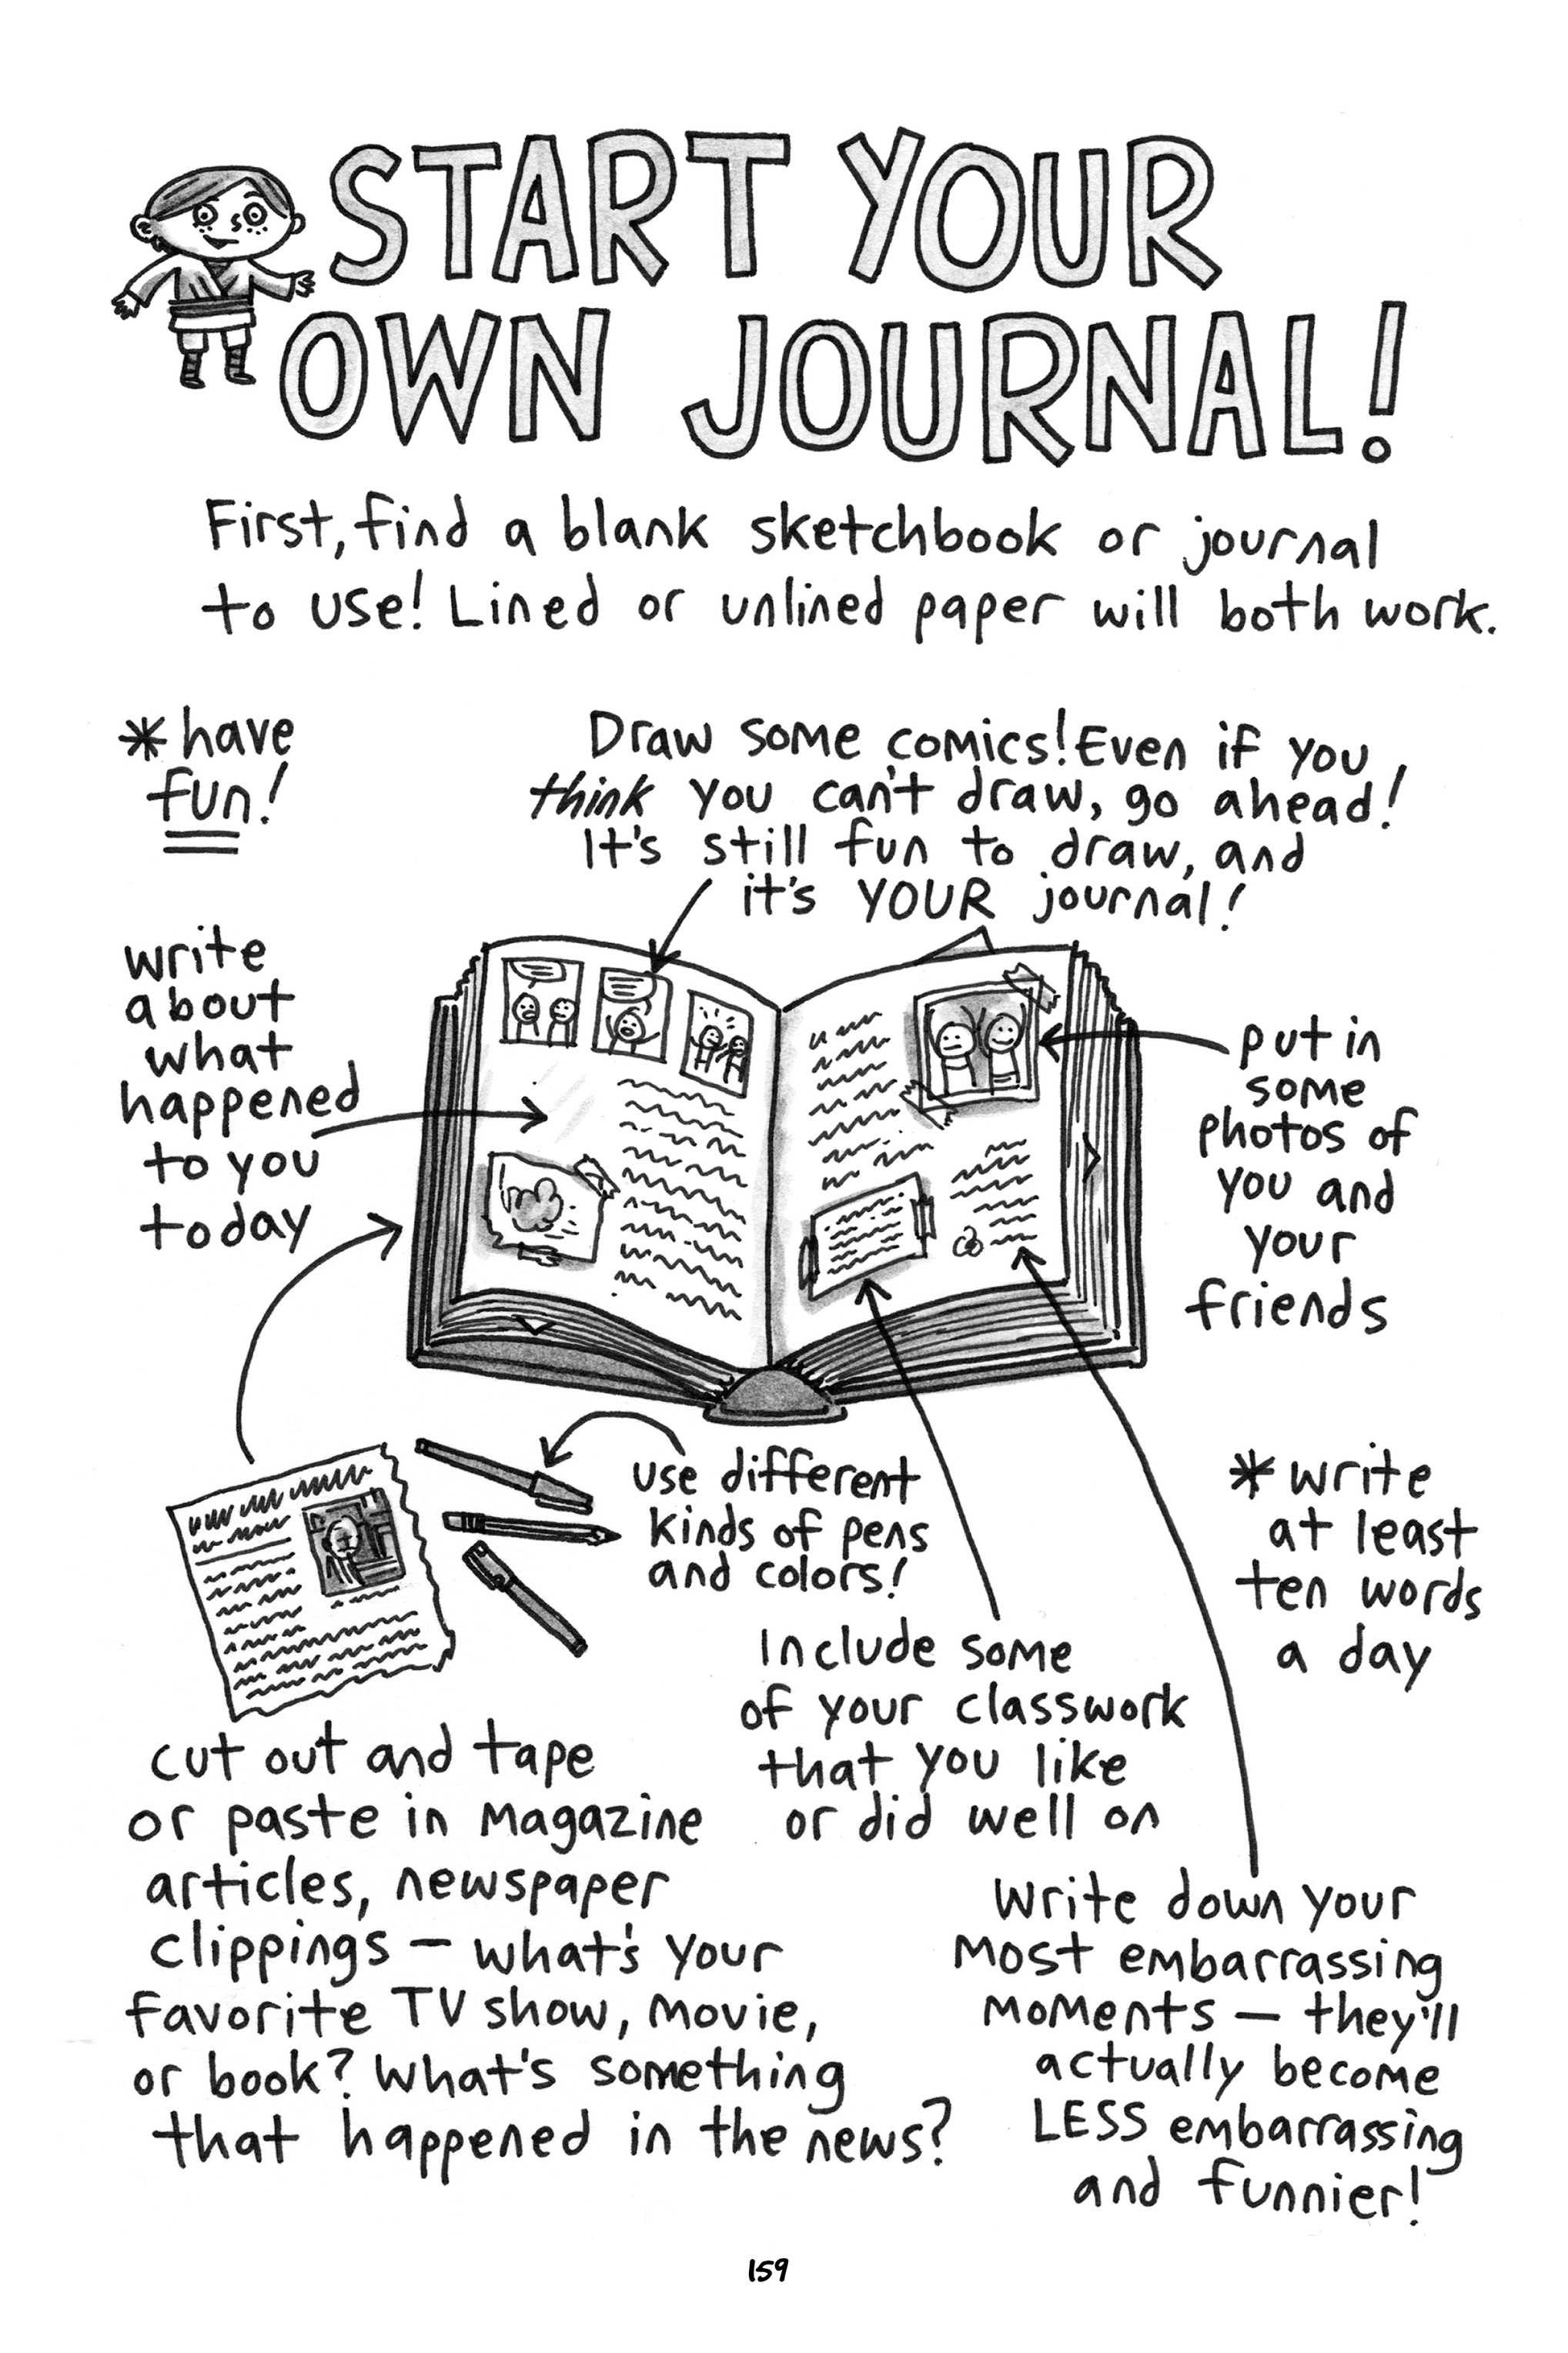 START YOUR
OWN JOURNAL!
First, find a blank sketchbook or journal
to use! Lined or unlined paper will both work.
* have
fun!
Draw some comics! Even if you
think you can't draw, go ahead!
It's still fun to draw, and
it's YOUR journal!
write
about
what
happened
to you
today
put in
some
photos of
you and
your
friends
use different
kinds of pens
and colors!
* write
at least
ten words
a day
Include some
of your classwork
that you like
or did well on
cut out and tape
or paste in magazine
articles, newspaper
clippings — what's your
favorite TV show, movie,
or book? What's something
that happened in the news?
Write down your
most embarrassing
moments — they'll
actually become
LESS embarrassing
and funnier!
159